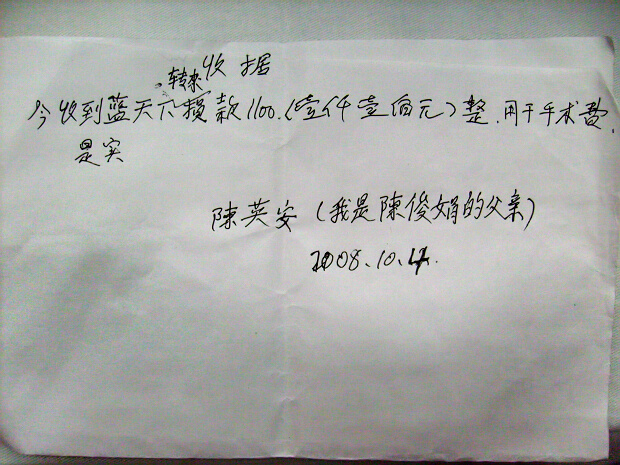 收据
转来
今收到蓝天下捐款1100.(壹仟壹佰元)整.用于手术费.
是实
陳英安(我是陳俊娟的父亲)
2008.10.4.